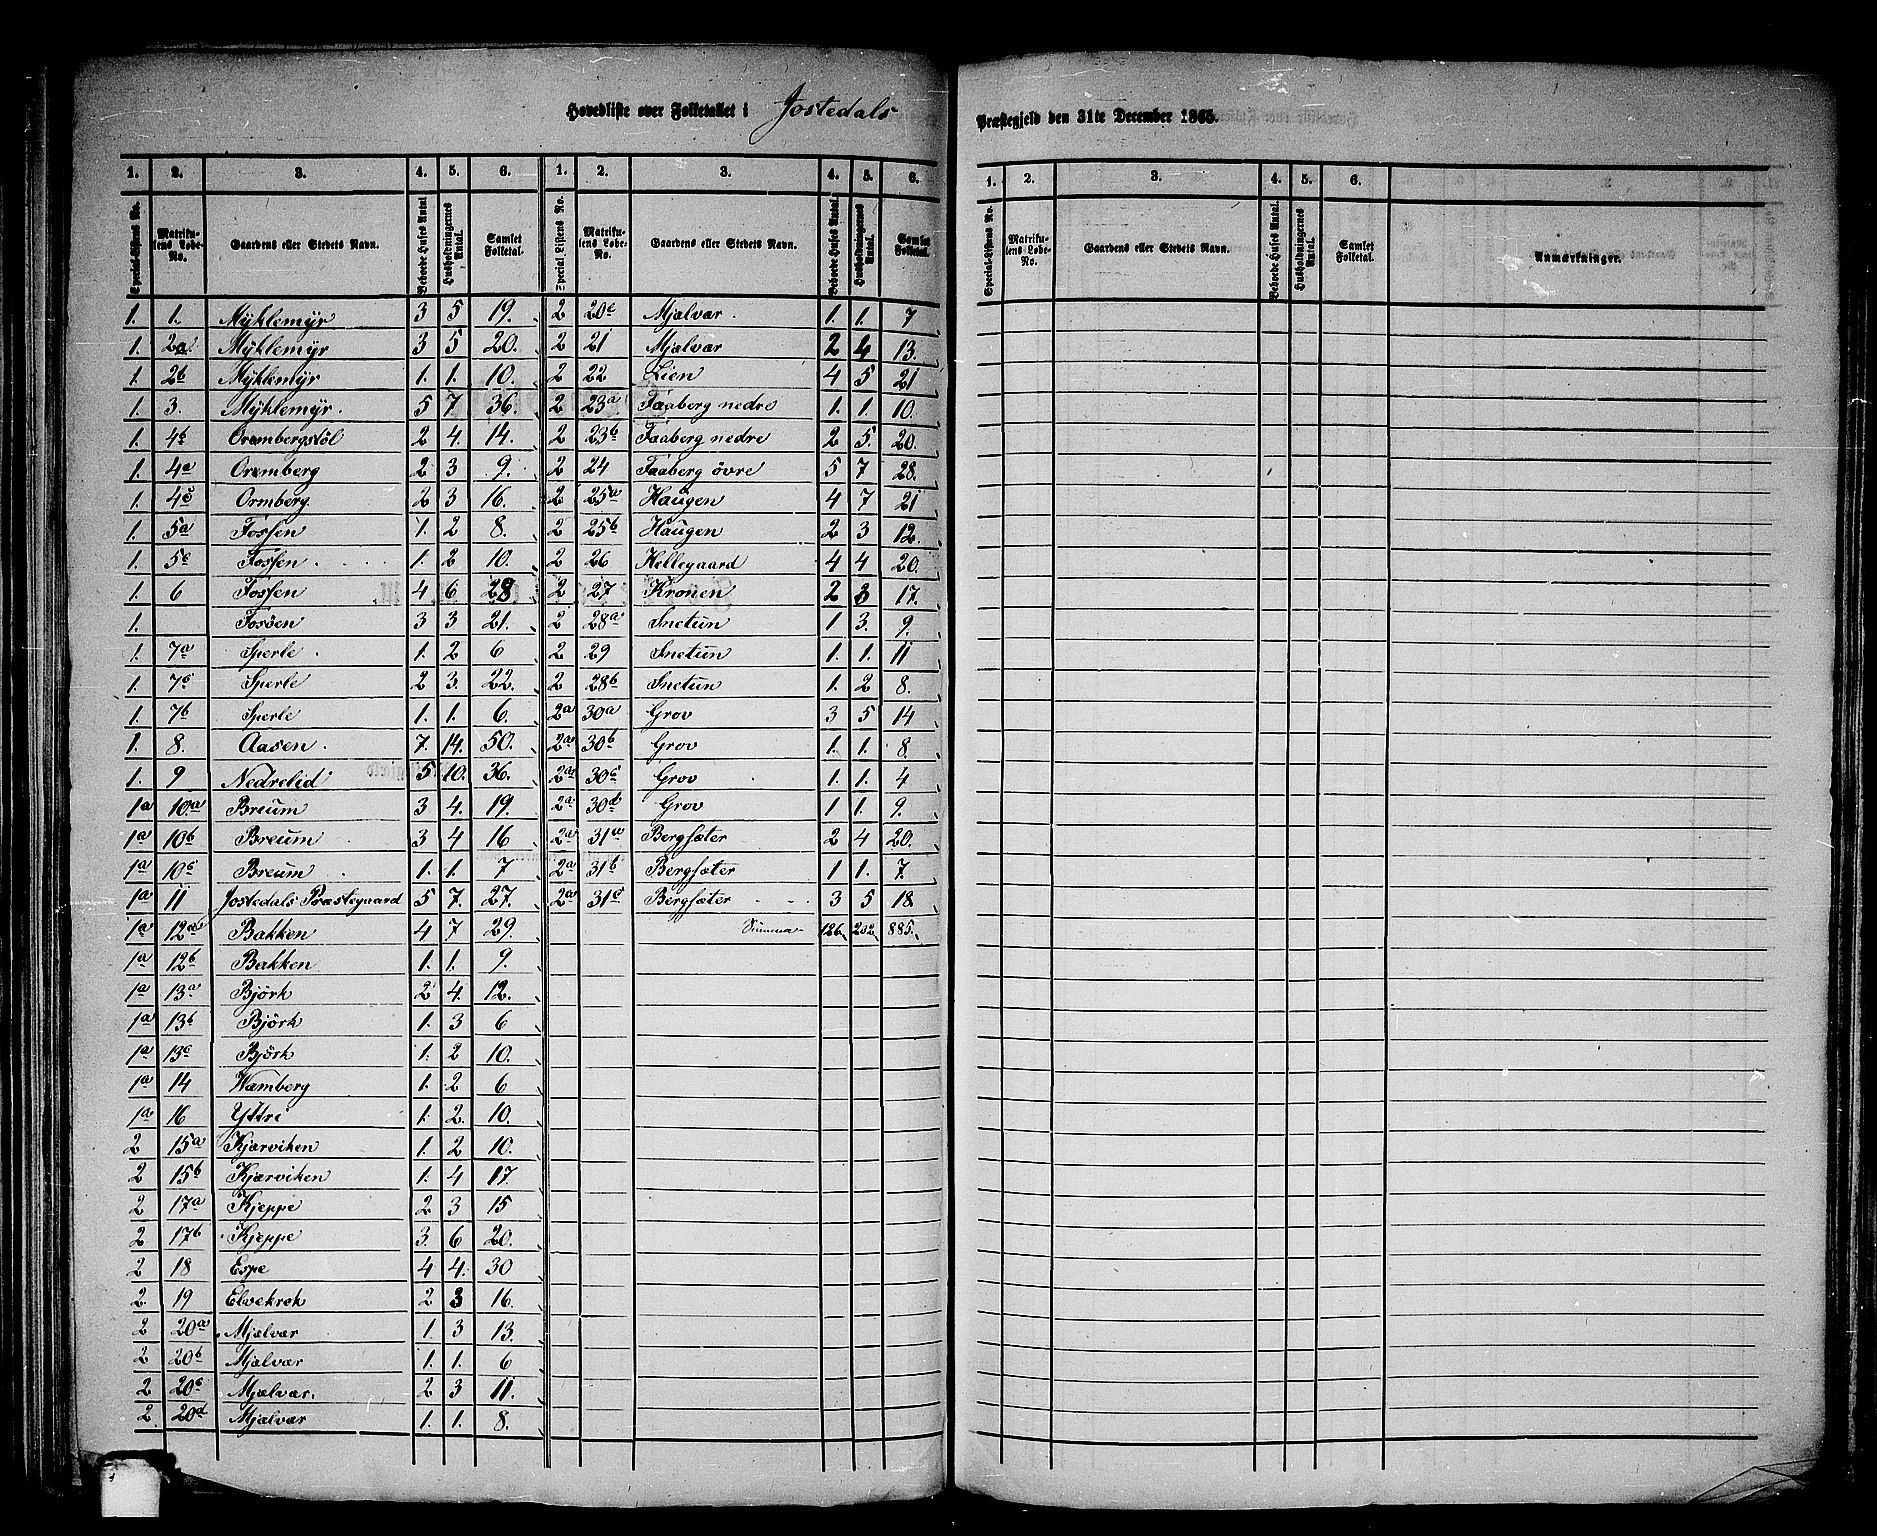 Hovedliste over Folketallet i Jostedals Præstegjeld den 31te December 1865.
1. 2. 3. 4. 5. 6. 1. 2. 3. 4. 5. 6.
Special-Listens No. Matrikulens Løbe-No. Gaardens eller Stedets Navn. Beboede Huses Antal Husholdningernes Antal. Samlet Folketal. Special-Listens No. Matrikulens Løbe-No. Gaardens eller Stedets Navn. Beboede Huses Antal. Husholdningernes Antal. Samlet Folketal.
1. 1. Myklemyr 3 5 19. 2 20e Mjælvær. 1. 1. 7
1. 2a. Myklemyr 3 5 20. 2 21 Mjælvær 2 4 13.
1. 2b Myklemyr 1. 1. 10. 2 22 Lien 4 5 21
1. 3. Myklemyr. 5 7 36. 2 23a Faaberg nedre 1. 1. 10.
1. 4b Ormbergstöl 2 4. 14. 2 23b Faaberg nedre 2 5. 20.
1. 4a Ormberg 2 3 9. 2 24 Faaberg övre 5 7 28.
1. 4c Ormberg 2 3 16. 2 25a Haugen 4 7 21
1. 5a Fossen 1. 2 8. 2 25b Haugen 2 3 12.
1. 5c Fossen 1. 2 10. 2 26 Hellegaard 4 4 20.
1. 6 Fossen 4 6 28 2 27 Kronen 2 3 17.
1. Fosöen 3 3 21. 2 28a Snetun 1 3. 9.
1. 7a Sperle. 1. 2 6 2 29 Snetun 1. 1. 11
1. 7c Sperle 2 3. 22. 2 28b Snetun 1. 2 8.
1. 7b Sperle 1. 1. 6. 2a 30a Grov 3 5 14
1. 8. Aasen. 7. 14. 50. 2a 30b Grov 1. 1. 8.
1. 9 Nedrelid 5 10. 36. 2a 30c Grov 1. 1. 4
1a 10.a Breum 3 4. 19. 2a 30d Grov 1. 1. 9.
1a 10b Breum 3 4 16 2a 31a Bergsæter 2 4 20.
1a 10c Breum 1. 1. 7 2a 31b Bergsæter 1 1. 7.
1a 11 Jostedals Præstegaard 5 7. 27. 2a 31c Bergsæter 3 5 18.
1a 12a Bakken 4 7 29. Summa 126. 202. 885.
1a 12b Bakken 1. 1. 9.
1a 13a Björk 2 4. 12.
1a 13b Björk 1. 3 6
1a 13c Björk 1. 2 10.
1a 14 Vamberg 1. 2 6
1a 16 Yttri 1. 2. 10.
2 15a Kjærviken 1. 2 10.
2 15b Kjærviken 1. 4 17.
2 17a Kjeppe 2 3 15
2 17b Kjeppe 3. 6 20.
2 18 Espe 4 4. 30
2. 19 Elvekrok 2 3 16.
2 20a Mjælvær 1. 3 13.
2 20b Mjælvær 1. 1. 6
2 20c Mjælvær. 2 3 11.
2 20d Mjælvær 1. 1. 8.
1. 2. 3. 4. 5. 6.
Special-Listens No. Matrikulens Løbe-No. Gaardens eller Stedets Navn. Beboede Huses Antal. Husholdningernes Antal. Samlet Folketal. Anmærkninger.